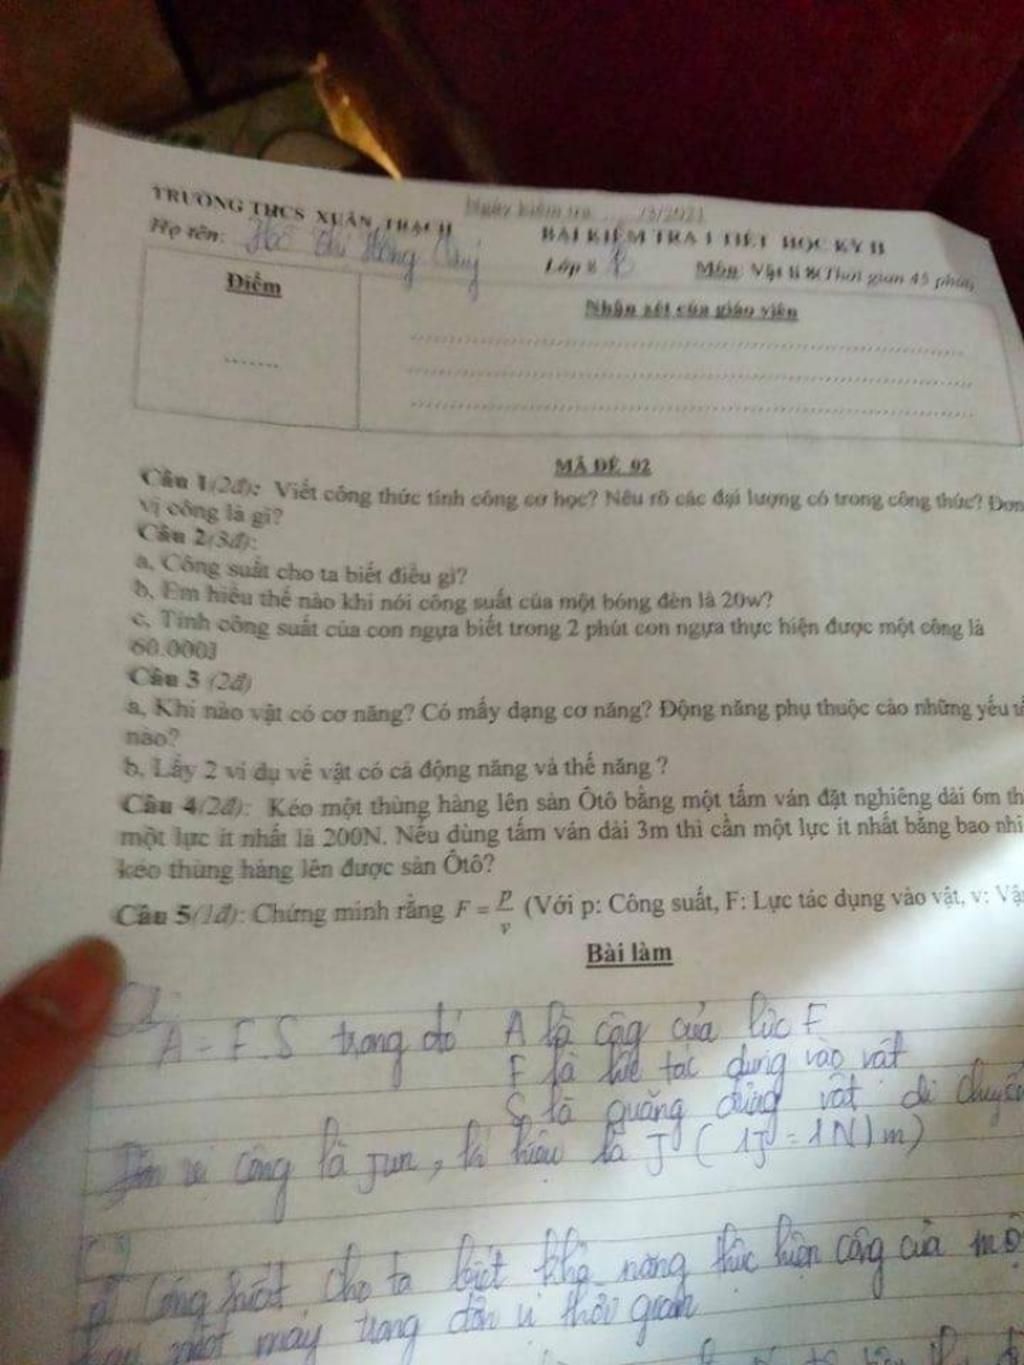 TRƯỜNG THCS XUÂN TRẠCH
Ngày kiểm tra ...../3/2021
BÀI KIỂM TRA 1 TIẾT HỌC KỲ II
Họ tên: Thị Hồng
Lớp 8 B Môn: Vật lí 8(Thời gian 45 phút)
Điểm
Nhận xét của giáo viên
MÃ ĐỀ 02
Câu 1(2đ): Viết công thức tính công cơ học? Nêu rõ các đại lượng có trong công thức? Đơn
vị công là gì?
Câu 2(3đ):
a, Công suất cho ta biết điều gì?
b, Em hiểu thế nào khi nói công suất của một bóng đèn là 20w?
c, Tính công suất của con ngựa biết trong 2 phút con ngựa thực hiện được một công là
60.000J
Câu 3 (2đ)
a, Khi nào vật có cơ năng? Có mấy dạng cơ năng? Động năng phụ thuộc cào những yếu
nào?
b, Lấy 2 ví dụ về vật có cả động năng và thế năng ?
Câu 4(2đ): Kéo một thùng hàng lên sàn Ôtô bằng một tấm ván đặt nghiêng dài 6m
một lực ít nhất là 200N. Nếu dùng tấm ván dài 3m thì cần một lực ít nhất bằng bao
kéo thùng hàng lên được sàn Ôtô?
Câu 5(1đ): Chứng minh rằng F = p/v (Với p: Công suất, F: Lực tác dụng vào vật, v:
Bài làm
A = F.S trong đó A là công của lực F
F là lực tác dụng vào vật
S là quãng đường vật di chuyển
Đơn vị công là Jun, kí hiệu là J (1J = 1N.1m)
Công suất cho ta biết khả năng thực hiện công của
một máy trong đơn vị thời gian